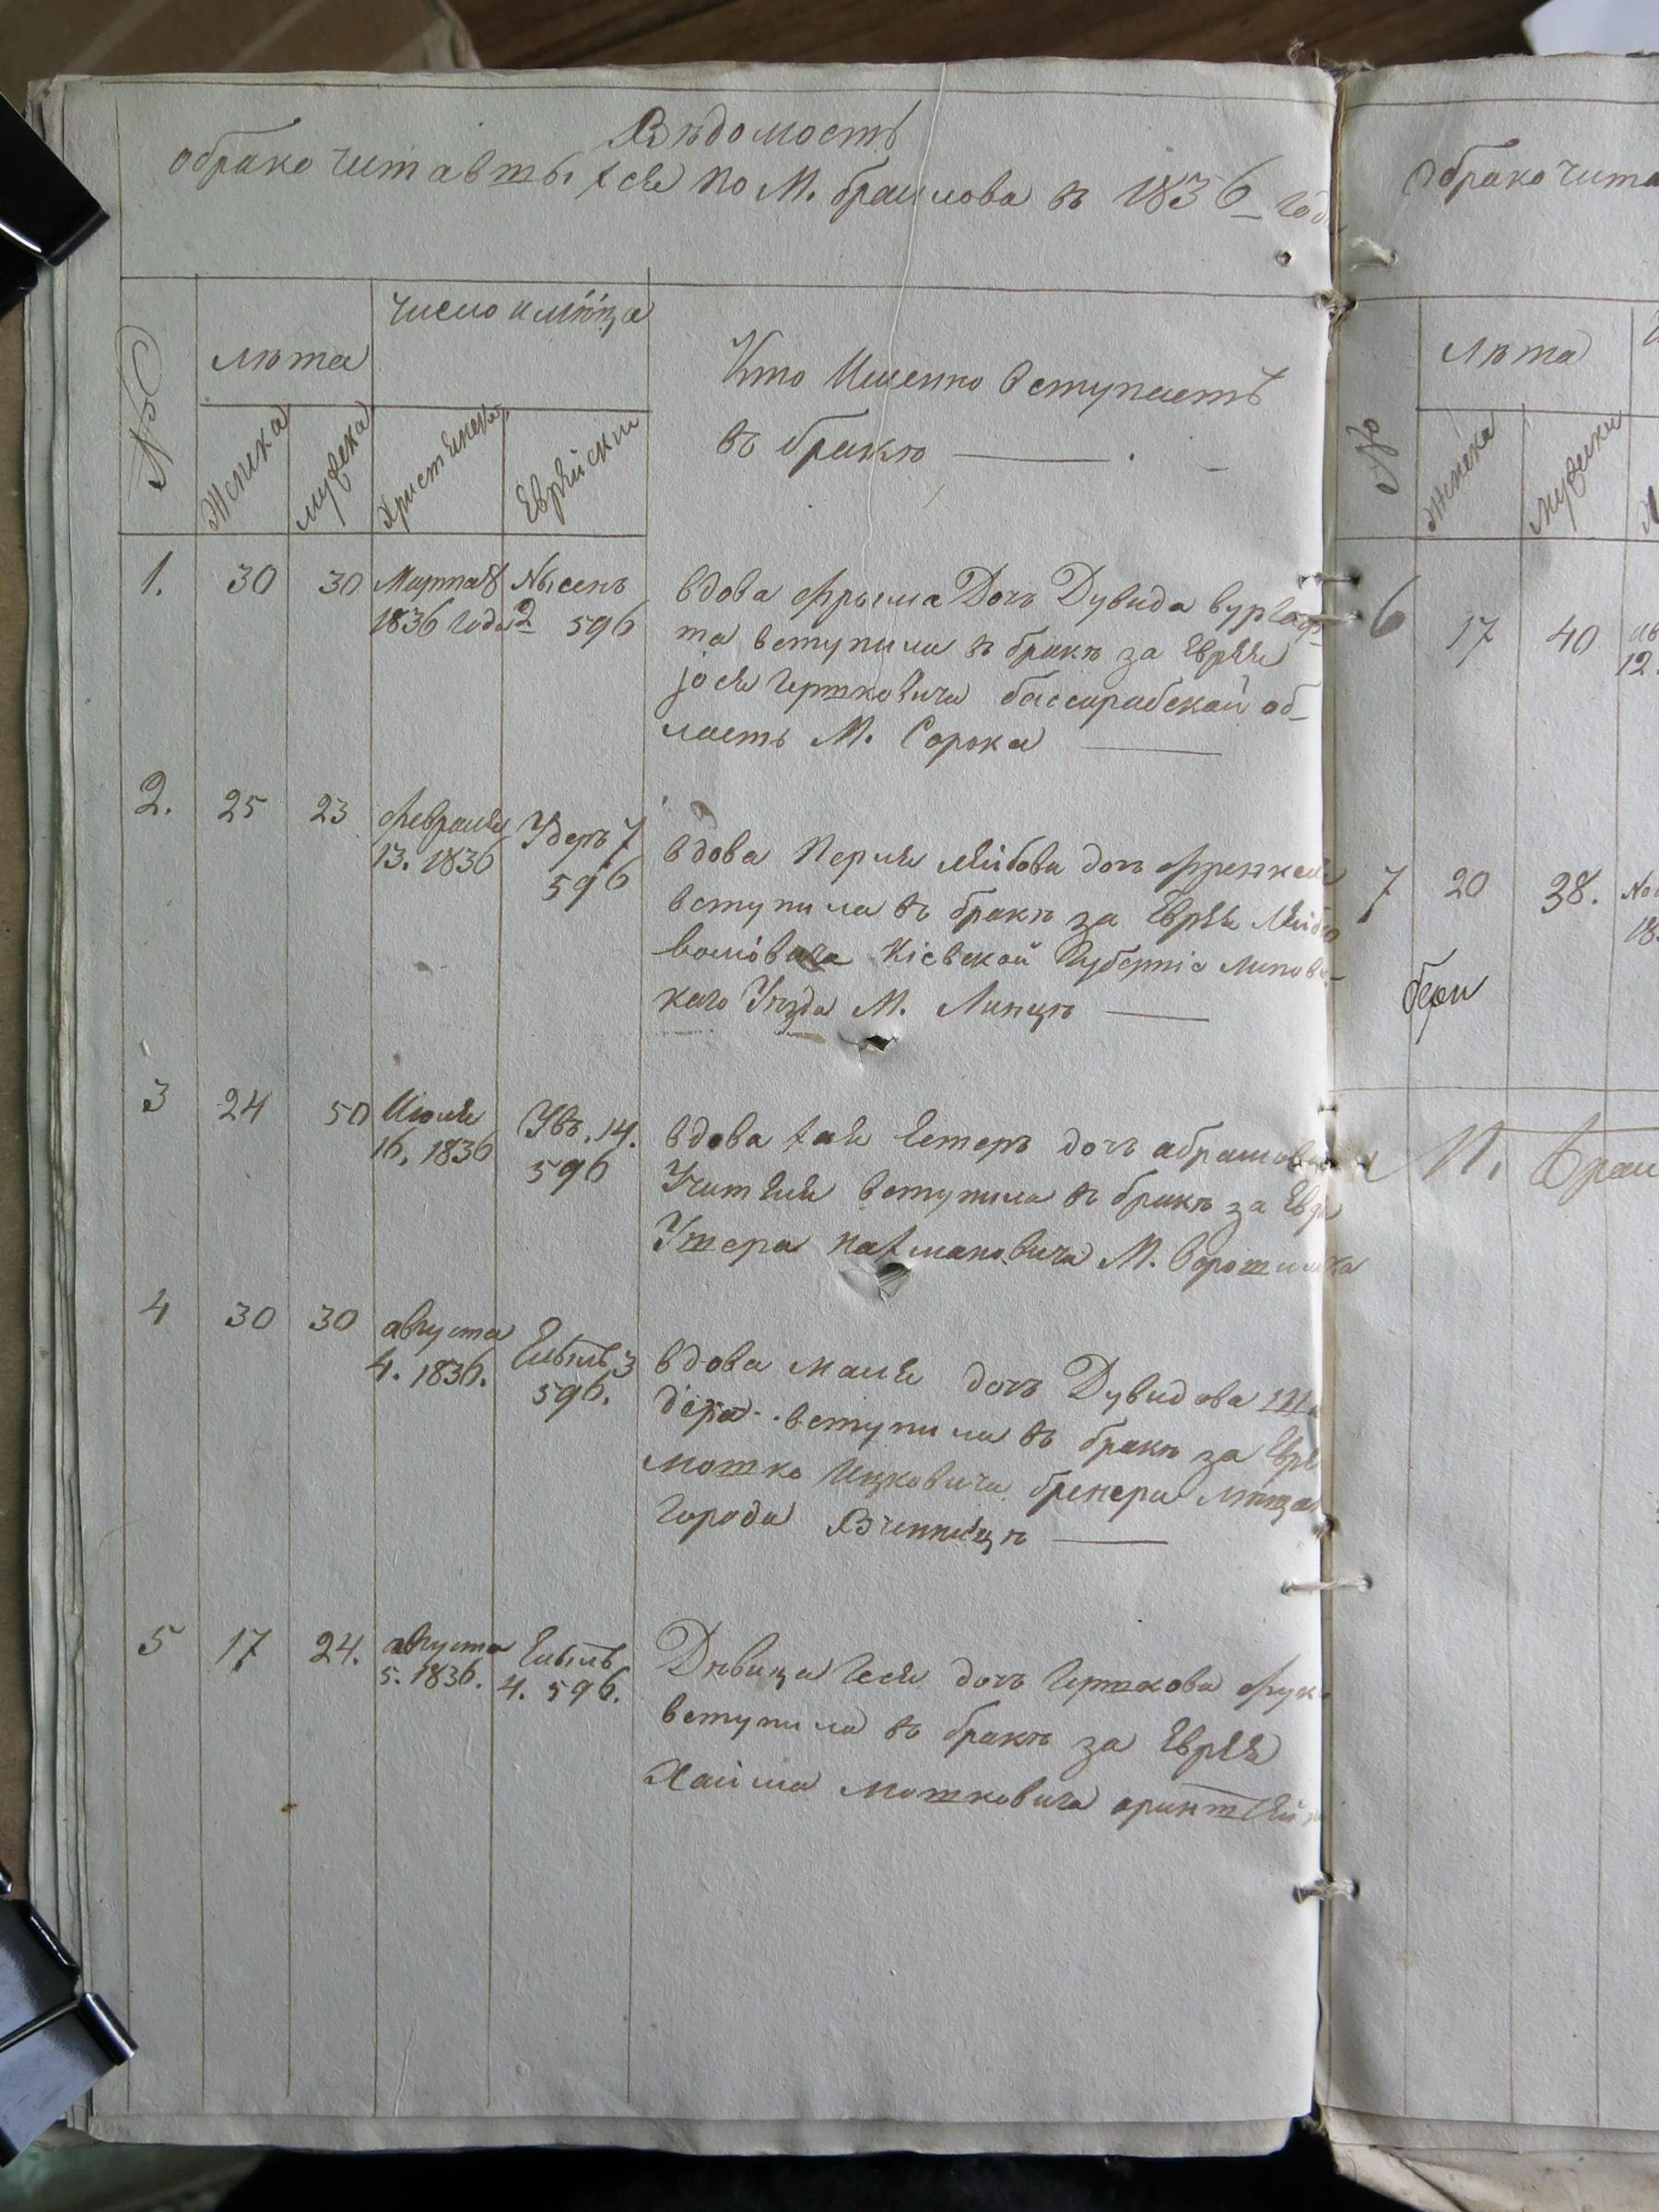 Вѣдомость
обракочиташыхся по М. браилова въ 1836 год
№
лѣта
число и мѣ̈ца
Женска
мужска
Христіянска
Еврейски
Кто Именно вступаетъ
въ бракъ
1.
30
30
Марта 8
1836 года
Нысенъ
2 596
вдова Фрыма Дочь Дувида
та вступила въ бракъ за Еврея
іося Гершковича бассарабской об-
ласть М. Сорока
2.
25
23
февраля
13. 1836
Удеръ 7
596
вдова Перля Лейбова дочь Френкеля
вступила въ бракъ за Еврея
Кіевской Губерніе Липовс-
каго Уѣзда М. Линцѣ
3
24
50
Июля
16, 1836
Увъ. 14.
596
вдова хая Естеръ дочь абрамова
Учителя вступила въ бракъ за Евре
Ушера нахмановича М. Ворошилка
4
30
30
августа
4. 1836.
Елѣлъ 3
596.
вдова маля дочь Дувидова
вступила въ бракъ за Евре
мошко Ицковича бренера мѣща
города Винницѣ
5
17
24.
августа
5. 1836.
Елѣлъ
4. 596.
Дѣвица Геся дочь Гершкова
вступила въ бракъ за Еврея
Хайма мошковича
обракочита
№
лѣта
Женска
мужски
6
17
40
ав
12.
7
20
38.
Но
18
М. Браи